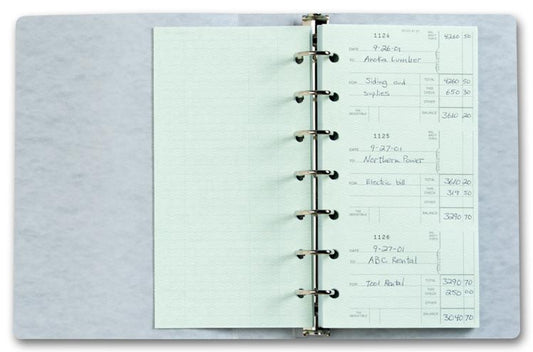 1124
4260 50
DATE 9-26-01
TO Anoka Lumber
FOR Siding and TOTAL 4260 50
supplies THIS CHECK 650 30
OTHER
TAX DEDUCTIBLE BALANCE 3610 20
1125
DATE 9-27-01
TO Northern Power
FOR Electric bill TOTAL 3610 20
THIS CHECK 319 50
OTHER
TAX DEDUCTIBLE BALANCE 3290 70
1126
DATE 9-27-01
TO ABC Rental
FOR Tool Rental TOTAL 3290 70
THIS CHECK 250 00
OTHER
TAX DEDUCTIBLE BALANCE 3040 70